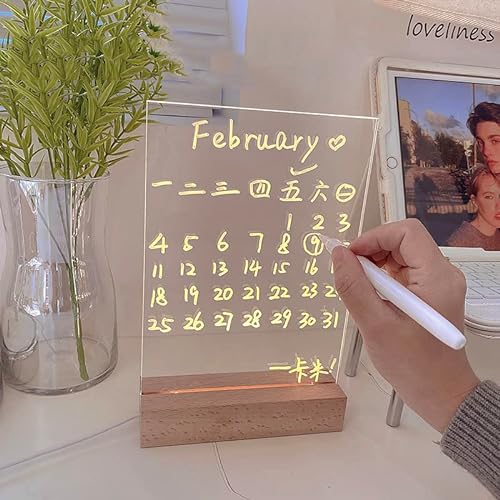 loveliness
February ♡
一 二 三 四 五 六 日
1 2 3
4 5 6 7 8 9
11 12 13 14 15 16
18 19 20 21 22 23
25 26 27 28 29 30 31
一卡米!